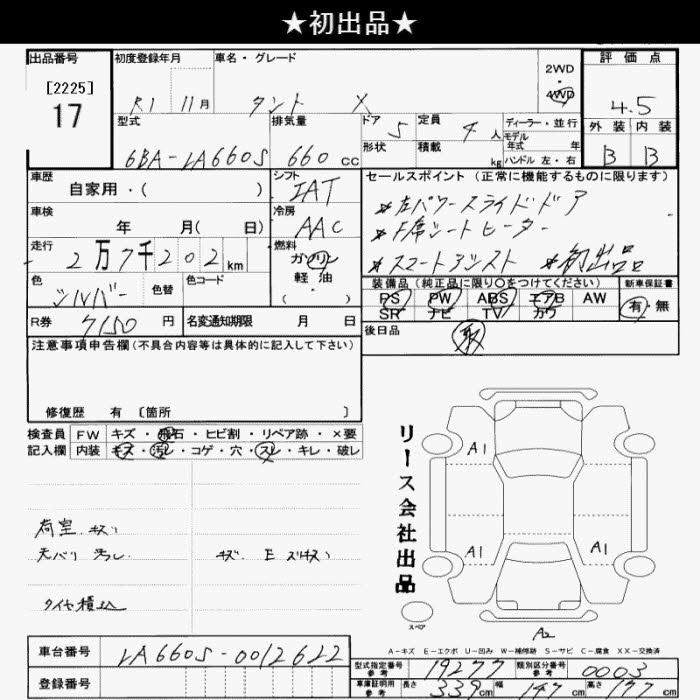 ★初出品★
出品番号 初度登録年月 車名・グレード 2WD・4WD 評価点
[2225]
17
R1 11月 タント X 4.5
型式 排気量 ドア 5 定員 4人 ディーラー・並行 外装 内装
6BA-LA660S 660cc 形状 積載 kg モデル年式 年 B B
ハンドル 左・右
車歴 シフト セールスポイント(正常に機能するものに限ります)
自家用・( ) IAT
※左パワースライドドア
車検 冷房
年 月( 日) AAC
※F席シートヒーター
走行 燃料
2万7千202km ガソリン
※スマートアシスト ※初出品
軽油
色 色替 色コード ・( )
シルバー
装備品(純正品に限り○をつけてください) 新車保証書
PS PW ABS エアB AW 有・無
SR ナビ TV カワ
R券 7150円 名変通知期限 月 日
後日品
注意事項申告欄(不具合内容等は具体的に記入して下さい)
修復歴 有 [箇所 ]
検査員 FW キズ・飛石・ヒビ割・リペア跡・×要
記入欄 内装 キズ・汚レ・コゲ・穴・スレ・キレ・破レ
リース会社出品
A1
A1 A1
荷室 キズ
天バリ 汚レ キズ E スリキズ
タイヤ積込
スペア
A2
A-キズ E-エクボ U-凹み W-補修跡 S-サビ C-腐食 XX-交換済
車台番号 LA660S-0012622
登録番号
型式指定番号参考 19277 類別区分番号参考 0003
車庫証明用参考 長さ 339cm 幅 147cm 高さ cm